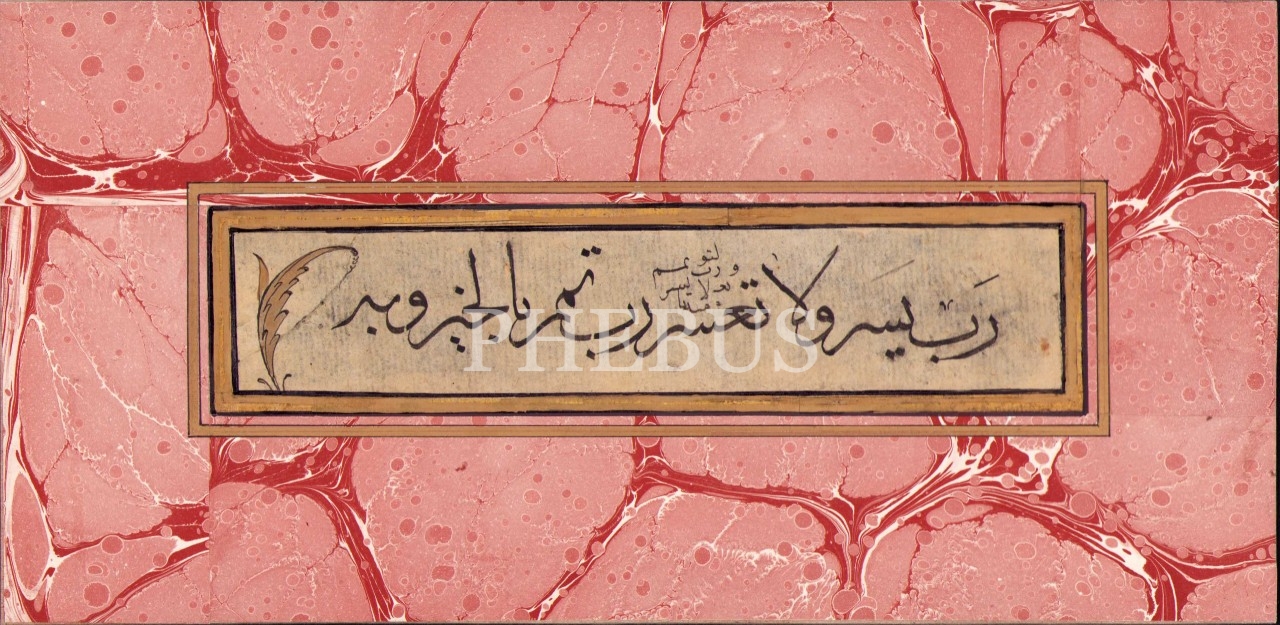 رَب يسر ولا تعسر رب تمم بالخير وبه
PHEBUS